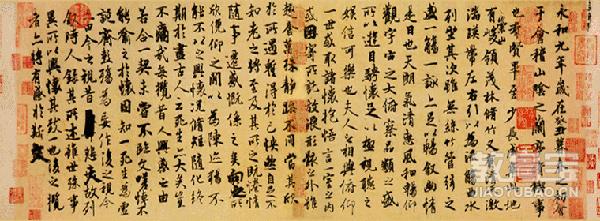 永和九年歲在癸丑暮春之初會
于會稽山陰之蘭亭脩稧事
也群賢畢至少長咸集此地
有崇山峻領茂林脩竹又有清流激
湍暎帶左右引以為流觴曲水
列坐其次雖無絲竹管弦之
盛一觴一詠亦足以暢敘幽情
是日也天朗氣清惠風和暢仰
觀宇宙之大俯察品類之盛
所以遊目騁懷足以極視聽之
娛信可樂也夫人之相與俯仰
一世或取諸懷抱悟言一室之內
或因寄所託放浪形骸之外雖
趣舍萬殊靜躁不同當其欣
於所遇蹔得於己怏然自足不
知老之將至及其所之既惓情
隨事遷感慨係之矣向之所
欣俛仰之閒以為陳迹猶不
能不以之興懷況脩短隨化終
期於盡古人云死生亦大矣豈
不痛哉每攬昔人興感之由
若合一契未嘗不臨文嗟悼不
能喻之於懷固知一死生為虛
誕齊彭殤為妄作後之視今
亦由今之視昔悲夫故列
敘時人錄其所述雖世殊事
異所以興懷其致一也後之攬
者亦將有感於斯文
教育宝
JIAOYUBAO.CN